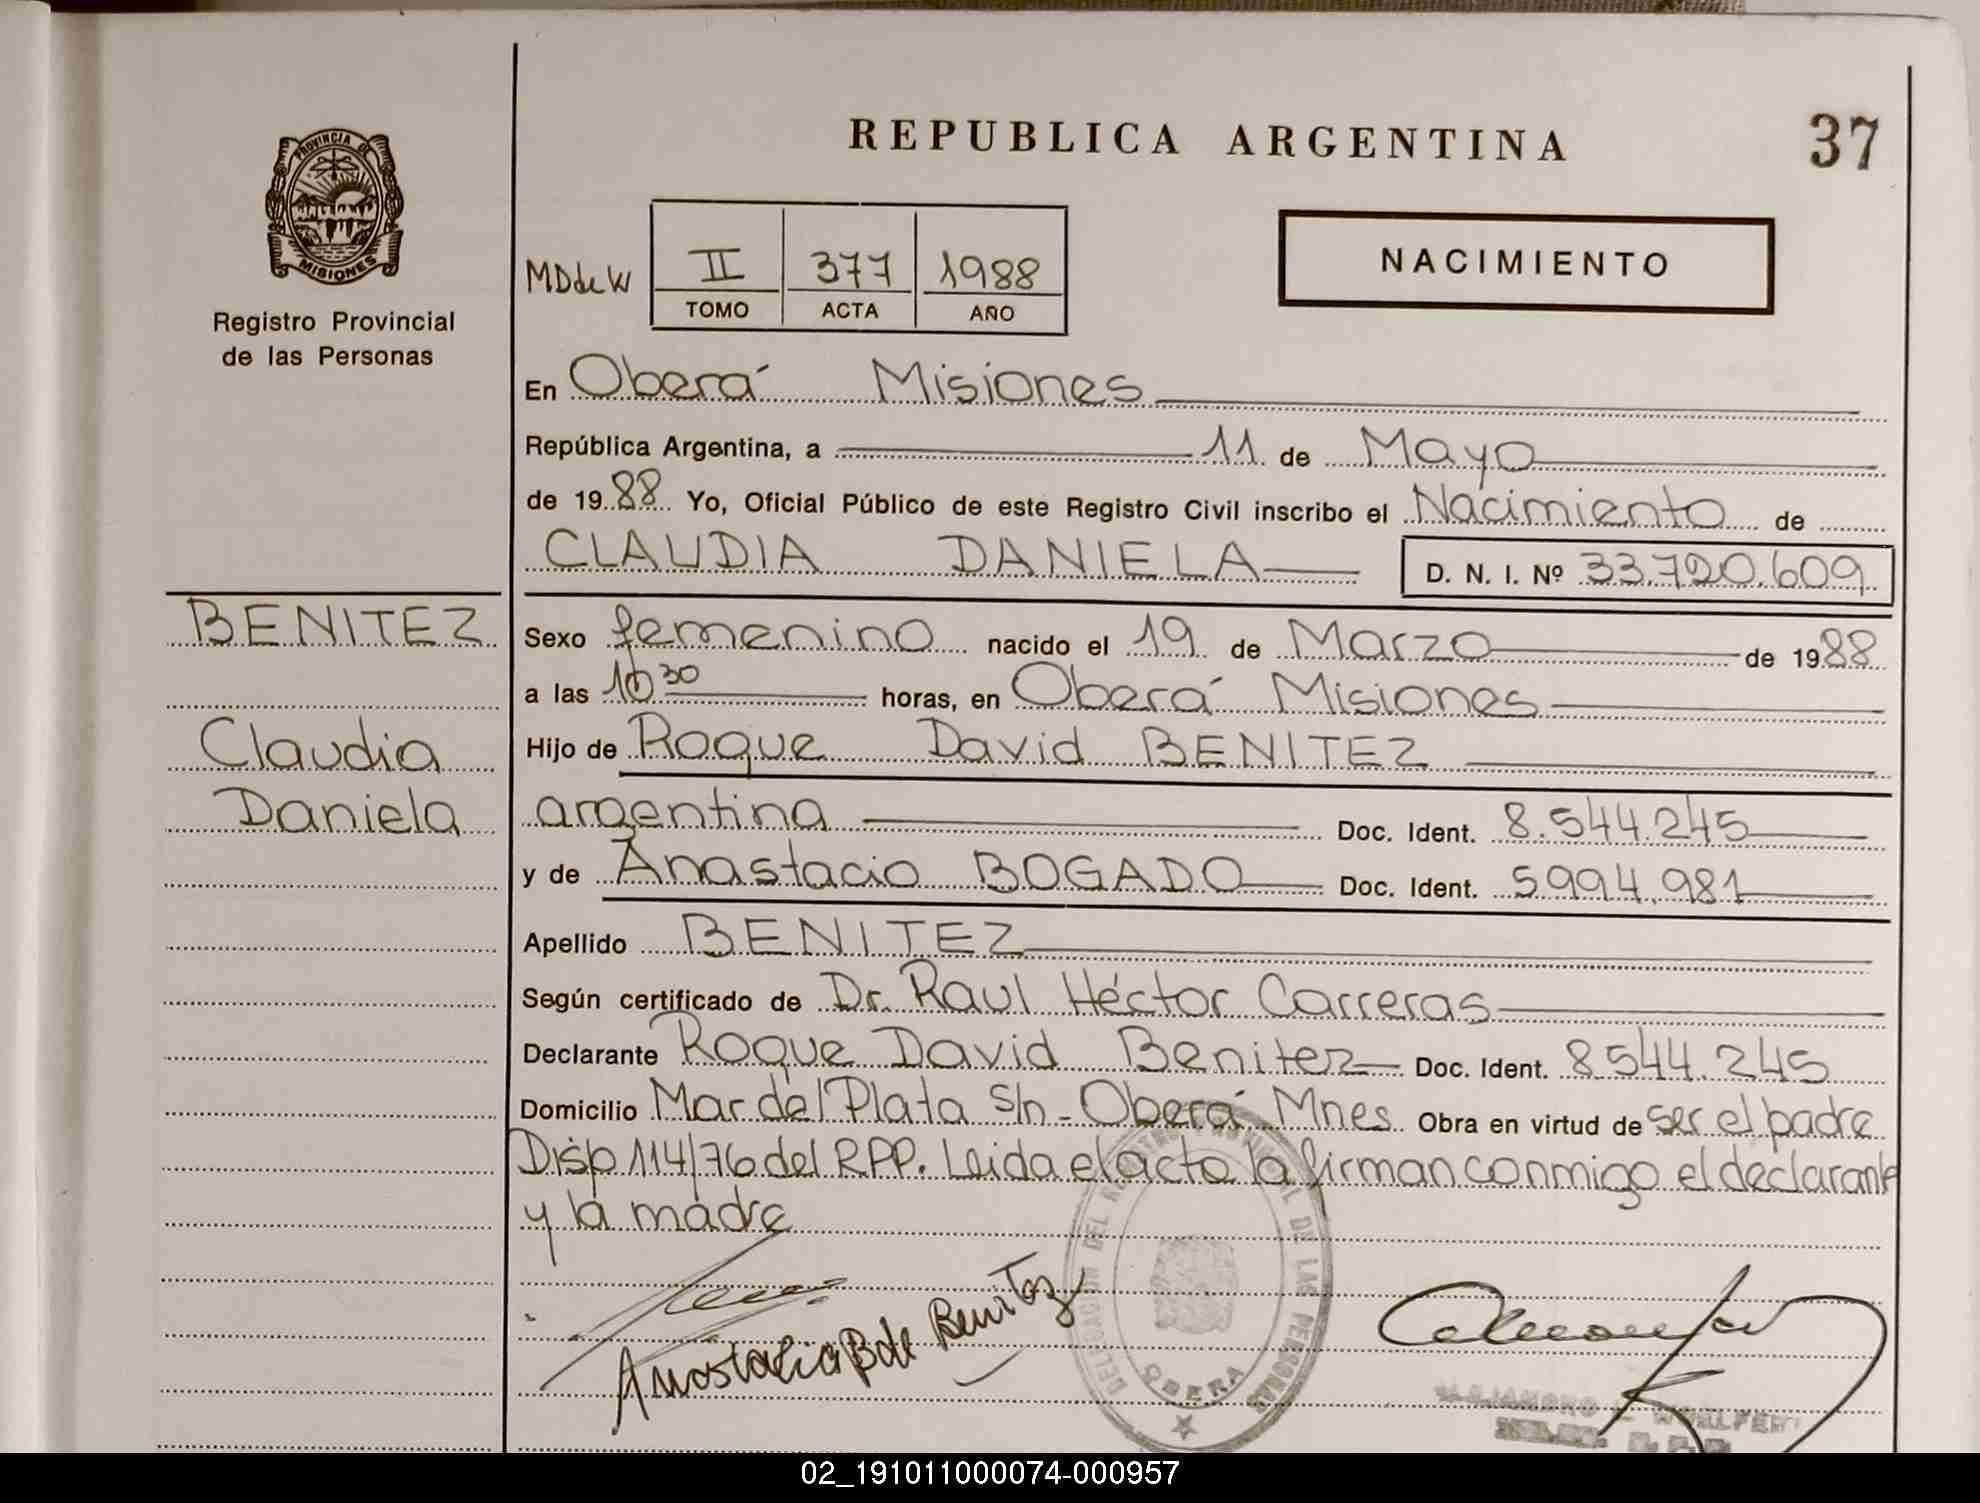 REPUBLICA ARGENTINA
37
PROVINCIA DE
MISIONES
Registro Provincial
de las Personas
MDdeW
II 377 1988
TOMO ACTA AÑO
NACIMIENTO
En Oberá Misiones
República Argentina, a 11 de Mayo
de 1988 Yo, Oficial Público de este Registro Civil inscribo el Nacimiento de
CLAUDIA DANIELA D. N. I. Nº 33.720.609
BENITEZ
Claudia
Daniela
Sexo femenino nacido el 19 de Marzo de 1988
a las 10 30 horas, en Oberá Misiones
Hijo de Roque David BENITEZ
argentina Doc. Ident. 8.544.245
y de Anastacia BOGADO Doc. Ident. 5.994.981
Apellido BENITEZ
Según certificado de Dr. Raul Héctor Carreras
Declarante Roque David Benitez Doc. Ident. 8.544.245
Domicilio Mar del Plata S/n - Oberá Mnes Obra en virtud de ser el padre
Disp 114/76 del R.P.P. Leida el acta la firman conmigo el declarante
y la madre
Anastacia B de Benitez
DELEGACION DEL REGISTRO PROVINCIAL DE LAS PERSONAS
OBERA
02_191011000074-000957